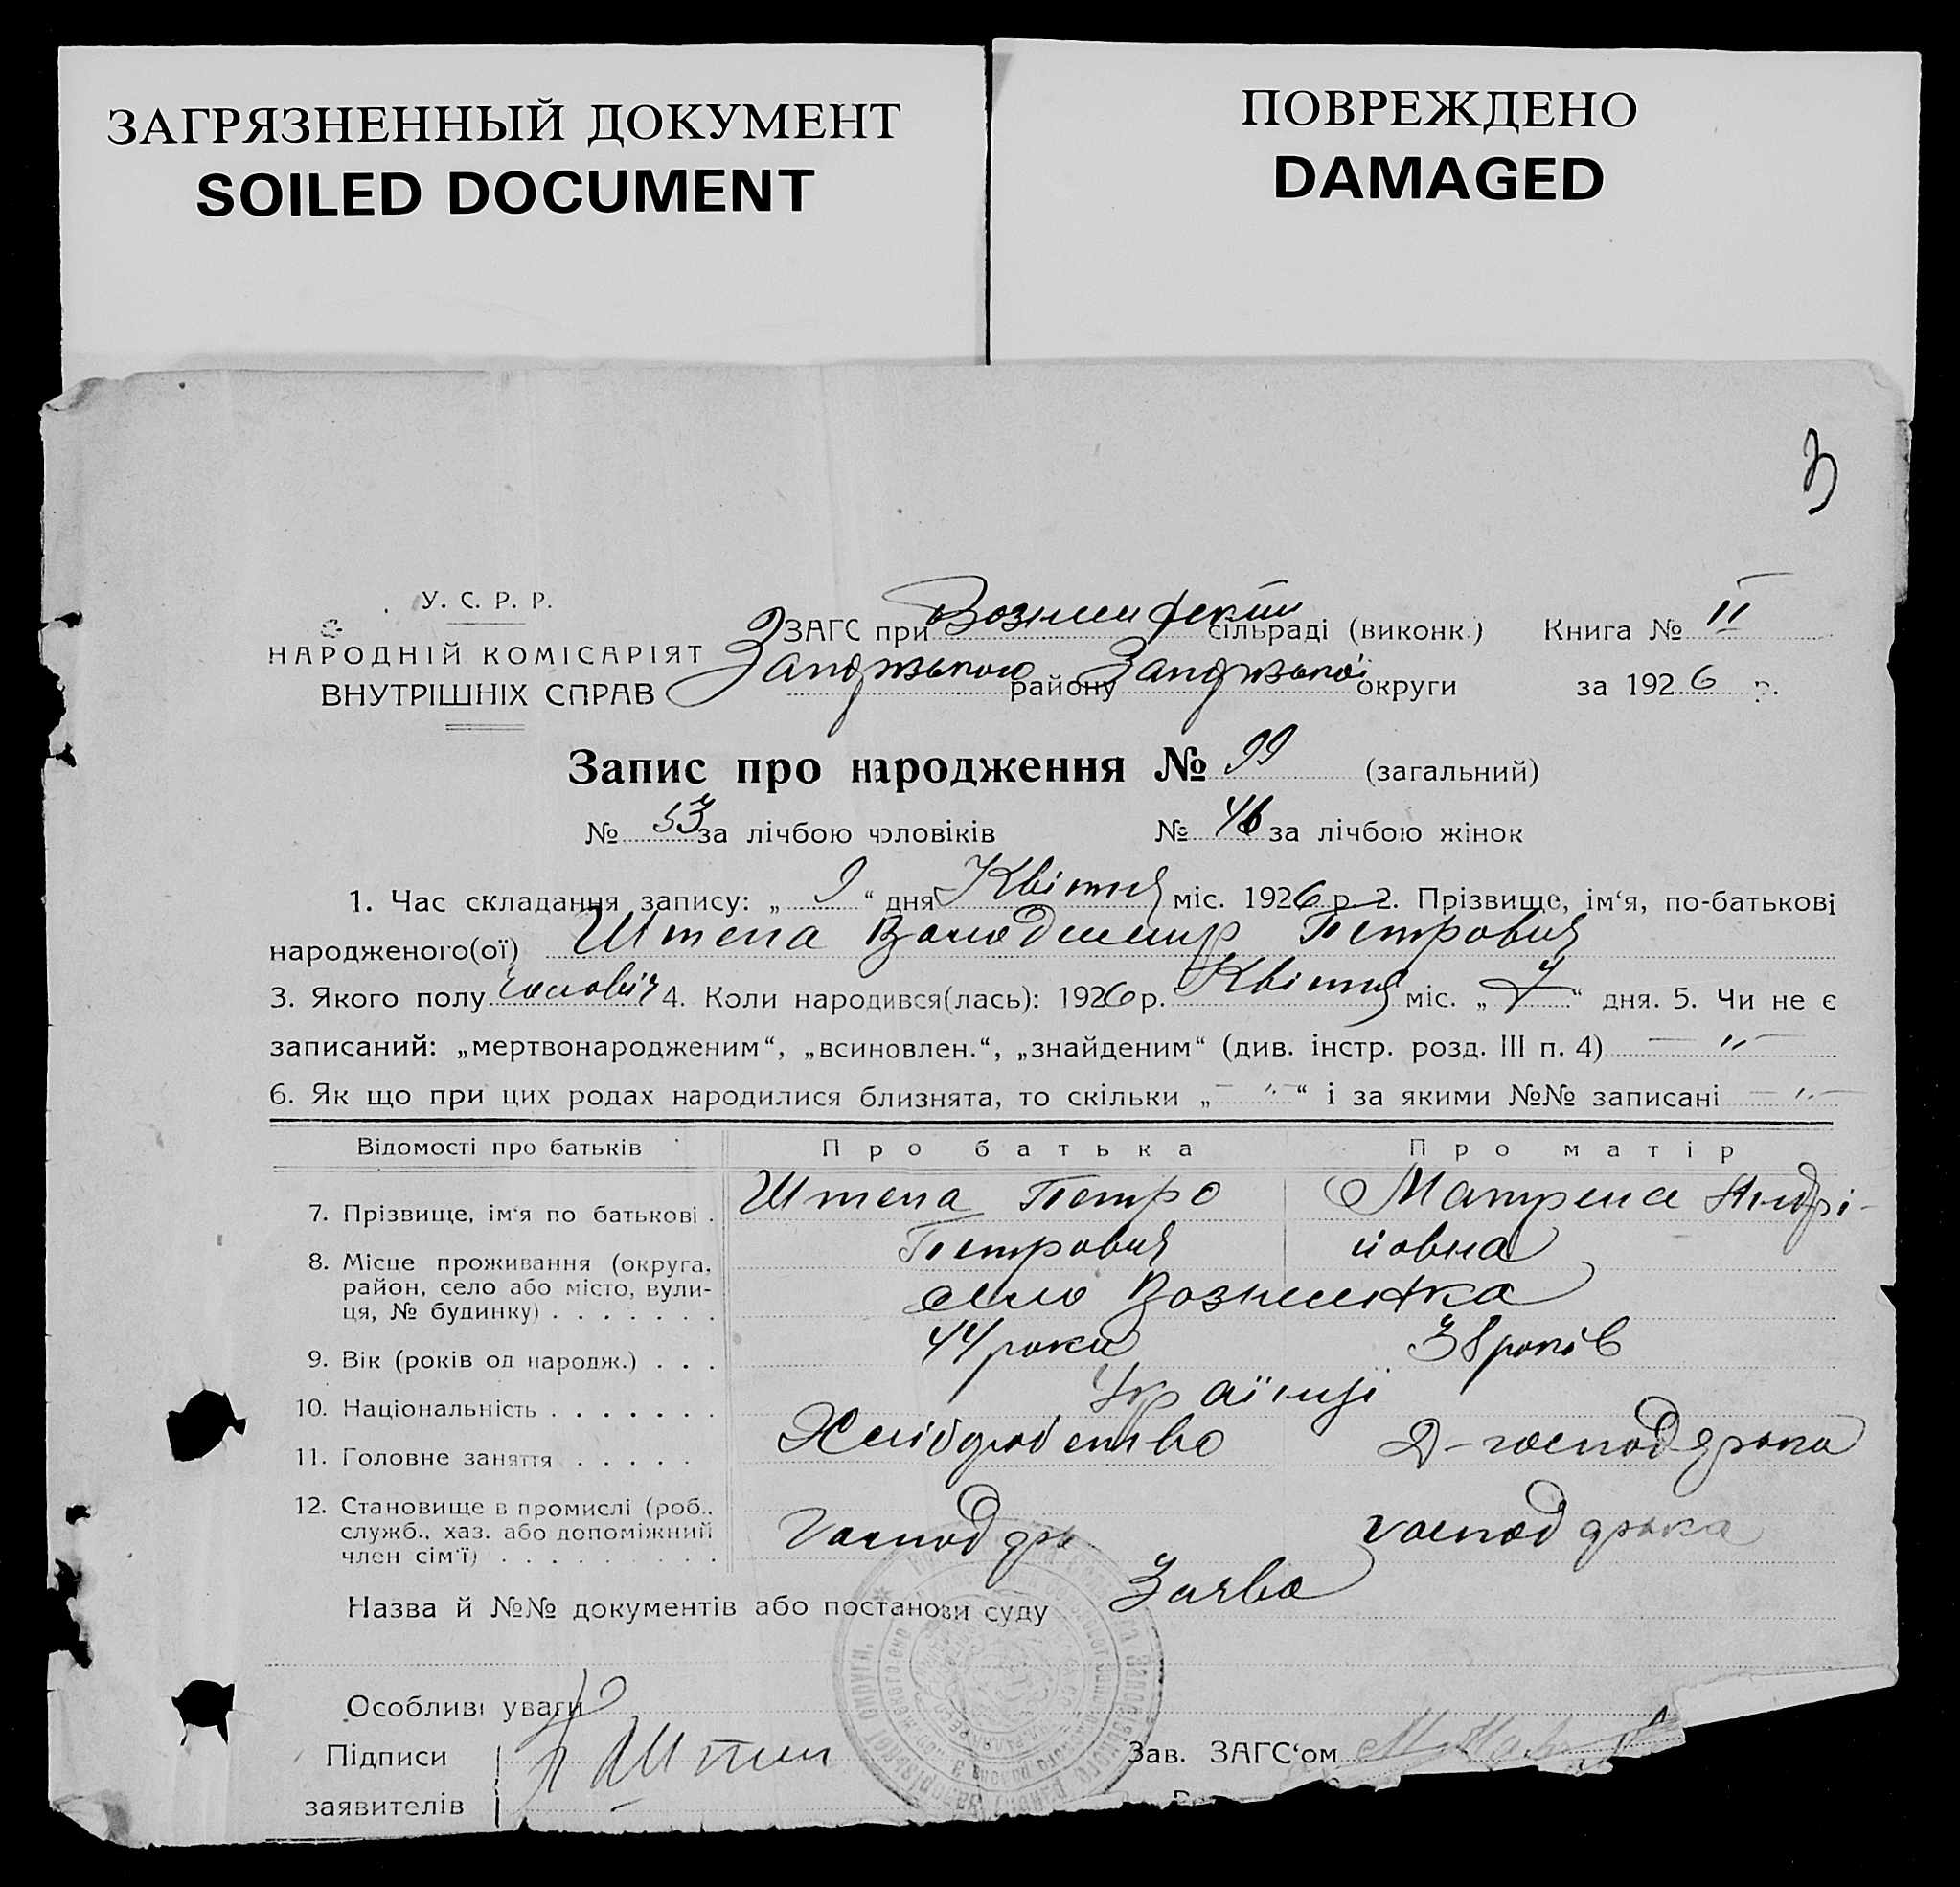 ЗАГРЯЗНЕННЫЙ ДОКУМЕНТ
SOILED DOCUMENT
ПОВРЕЖДЕНО
DAMAGED
3
У. С. Р. Р.
НАРОДНІЙ КОМІСАРІЯТ
ВНУТРІШНІХ СПРАВ
ЗАГС при сільраді (виконк.) Книга № II
району округи за 1926 р.
Запис про народження № 99 (загальний)
№ 53 за лічбою чоловіків № 46 за лічбою жінок
1. Час складання запису: „ 9 “ дня Квітня міс. 1926 р. 2. Прізвище, ім‘я, по-батькові
народженого(ої) Штепа Володимир Петрович
3. Якого полу чоловіч 4. Коли народився(лась): 1926 р. Квітня міс. „ 7 “ дня. 5. Чи не є
записаний: „мертвонародженим“, „всиновлен.“, „знайденим“ (див. інстр. розд. III п. 4) — „ —
6. Як що при цих родах народилися близнята, то скільки „ — „ — “ і за якими №№ записані — „ —
Відомості про батьків Про батька Про матір
7. Прізвище, ім‘я по батькові . Штепа Петро Матрена Андрі-
Петрович йовна
8. Місце проживання (округа,
район, село або місто, вули-
ця, № будинку) . . . . . . . село Вознесенка
9. Вік (років од народж.) . . . 44 роки 38 років
10. Національність . . . . . . . Українці
11. Головне заняття . . . . . Хліборобство Д-господарка
12. Становище в промислі (роб.,
служб., хаз. або допоміжний
член сім‘ї) . . . . . . . . . Господарь господарка
Назва й №№ документів або постанови суду Заява
Особливі уваги
Підписи Штепа Зав. ЗАГС‘ом
заявителів